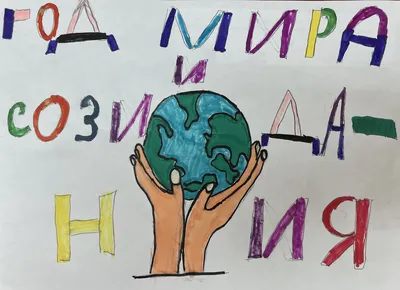 ГОД МИРА
И
СОЗИДА-
НИЯ